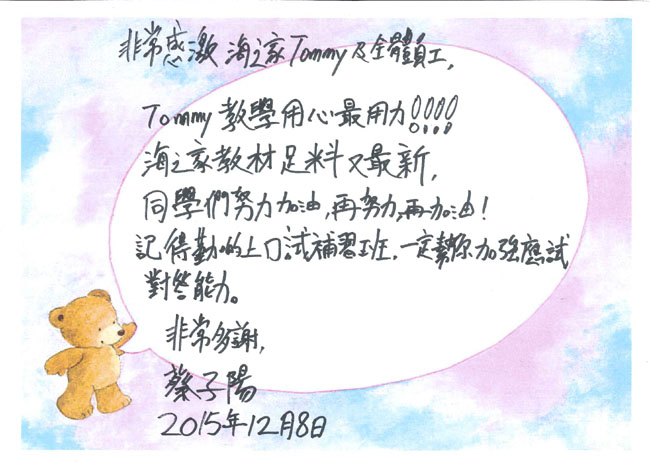 非常感激 海之家 Tommy 及全體員工,
Tommy 教學用心最用力!!!!
海之家教材足料又最新,
同學們努力加油,再努力,再加油!
記得勤啲上口試補習班,一定幫你加強應試
對答能力。
非常多謝,
蔡子陽
2015年12月8日